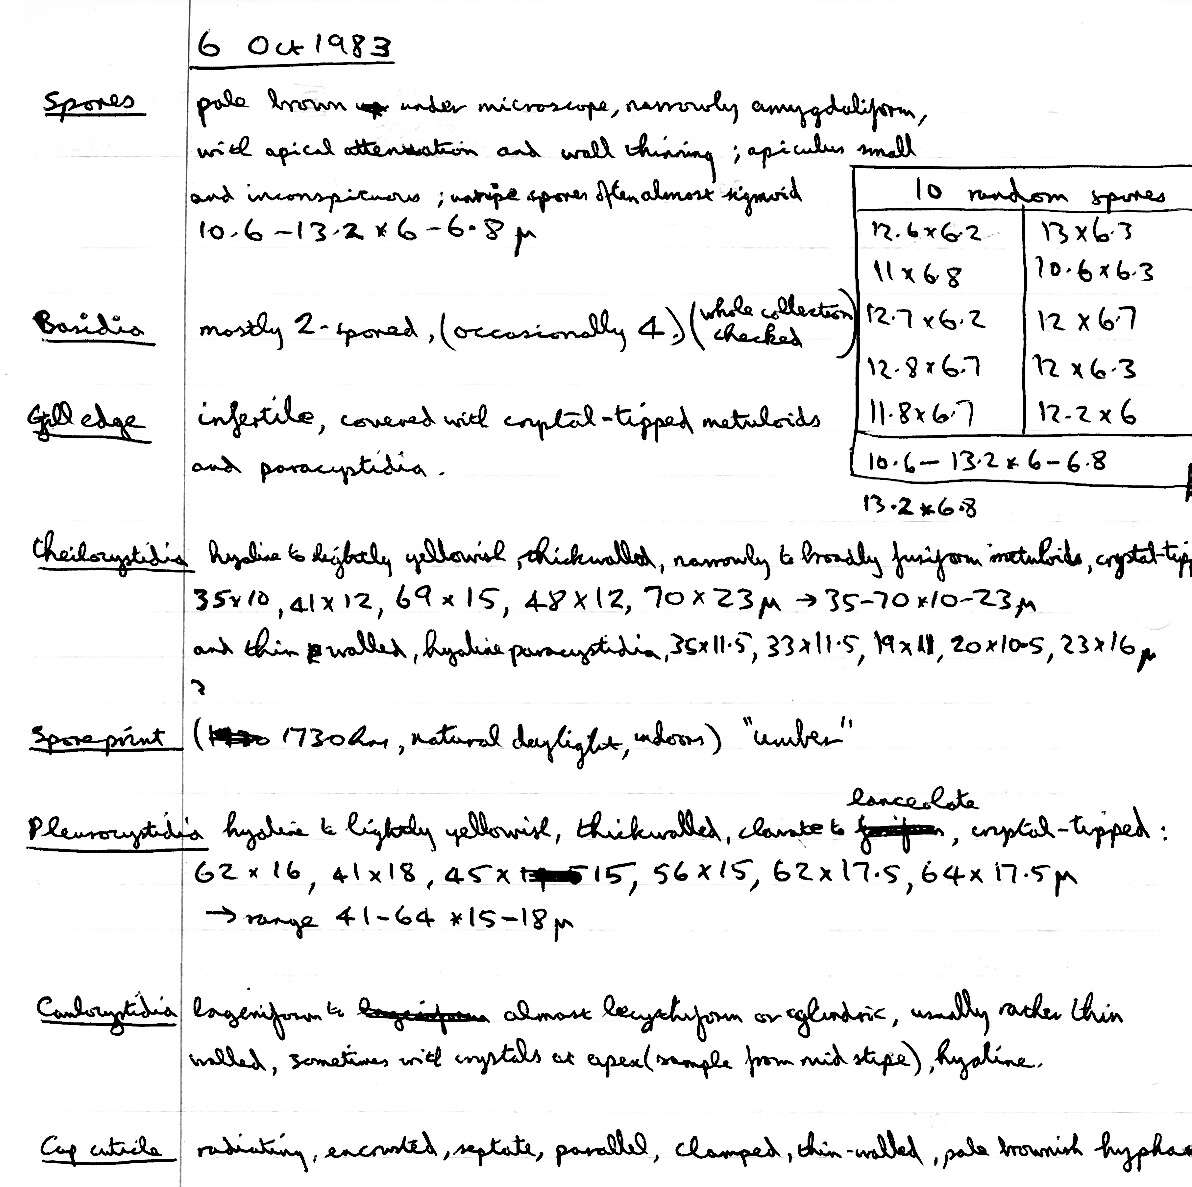 6 Oct 1983
Spores pale brown under microscope, narrowly amygdaliform,
with apical attenuation and wall thinning ; apiculus small
and inconspicuous ; unripe spores often almost sigmoid
10.6 – 13.2 × 6 – 6.8 μ
10 random spores
12.6 × 6.2 13 × 6.3
11 × 6.8 10.6 × 6.3
12.7 × 6.2 12 × 6.7
12.8 × 6.7 12 × 6.3
11.8 × 6.7 12.2 × 6
10.6 – 13.2 × 6 – 6.8
13.2 × 6.8
Basidia mostly 2-spored, (occasionally 4) (whole collection
checked)
Gill edge infertile, covered with cryptal-tipped metuloids
and paracystidia.
Cheilocystidia hyaline to lightly yellowish, thickwalled, narrowly to broadly fusiform metuloids, crystal-tipp
35×10, 41×12, 69×15, 48×12, 70×23μ → 35–70×10–23μ
and thin walled, hyaline paracystidia, 35×11.5, 33×11.5, 19×11, 20×10.5, 23×16 μ
?
Spore print ( 1730 hrs, natural daylight, indoors) "umber"
lanceolate
Pleurocystidia hyaline to lightly yellowish, thickwalled, clavate to , cryptal-tipped :
62 × 16, 41×18, 45× 15, 56×15, 62×17.5, 64×17.5μ
→ range 41–64 × 15–18 μ
Caulocystidia lageniform to almost lecythiform or cylindric, usually rather thin
walled, sometimes with crystals at apex (sample from mid stipe), hyaline.
Cap cuticle radiating, encrusted, septate, parallel, clamped, thin-walled, pale brownish hyphae